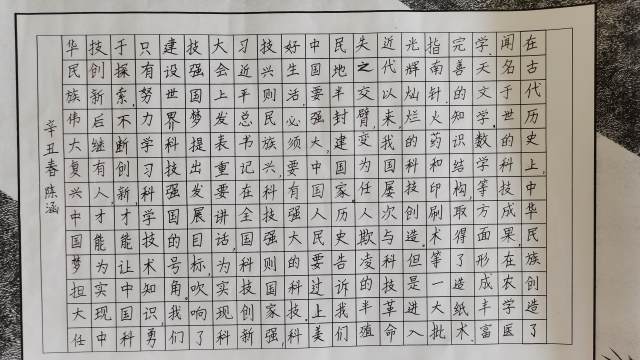 在古代历史上,中华民族创造了
闻名于世的科技成果,在农学医
学,天文学,数学等方面形成丰富
完善的知识结构,取得了造纸术,
指南针,火药和印刷术等一大批
光辉灿烂的科技创造.但是进入
近代以来,我国屡次与科技革命
失之交臂,变为任人欺凌的半殖
民地半封建国家.历史告诉我们
中国要强大,中国人民要过上美
好生活,必须要有强大的科技.科
技兴则民族兴,科技强则国家强,
习近平总书记在全国科技创新
大会上发表重要讲话,为实现科
技强国梦提出发展目标,吹响了
建设世界科技强国的号角.我们
只有努力学习科学技术知识,勇
于探索,不断创新,才能让中国科
技创新后继有人,才能为实现中
华民族伟大复兴中国梦担大任
辛丑春陈涵